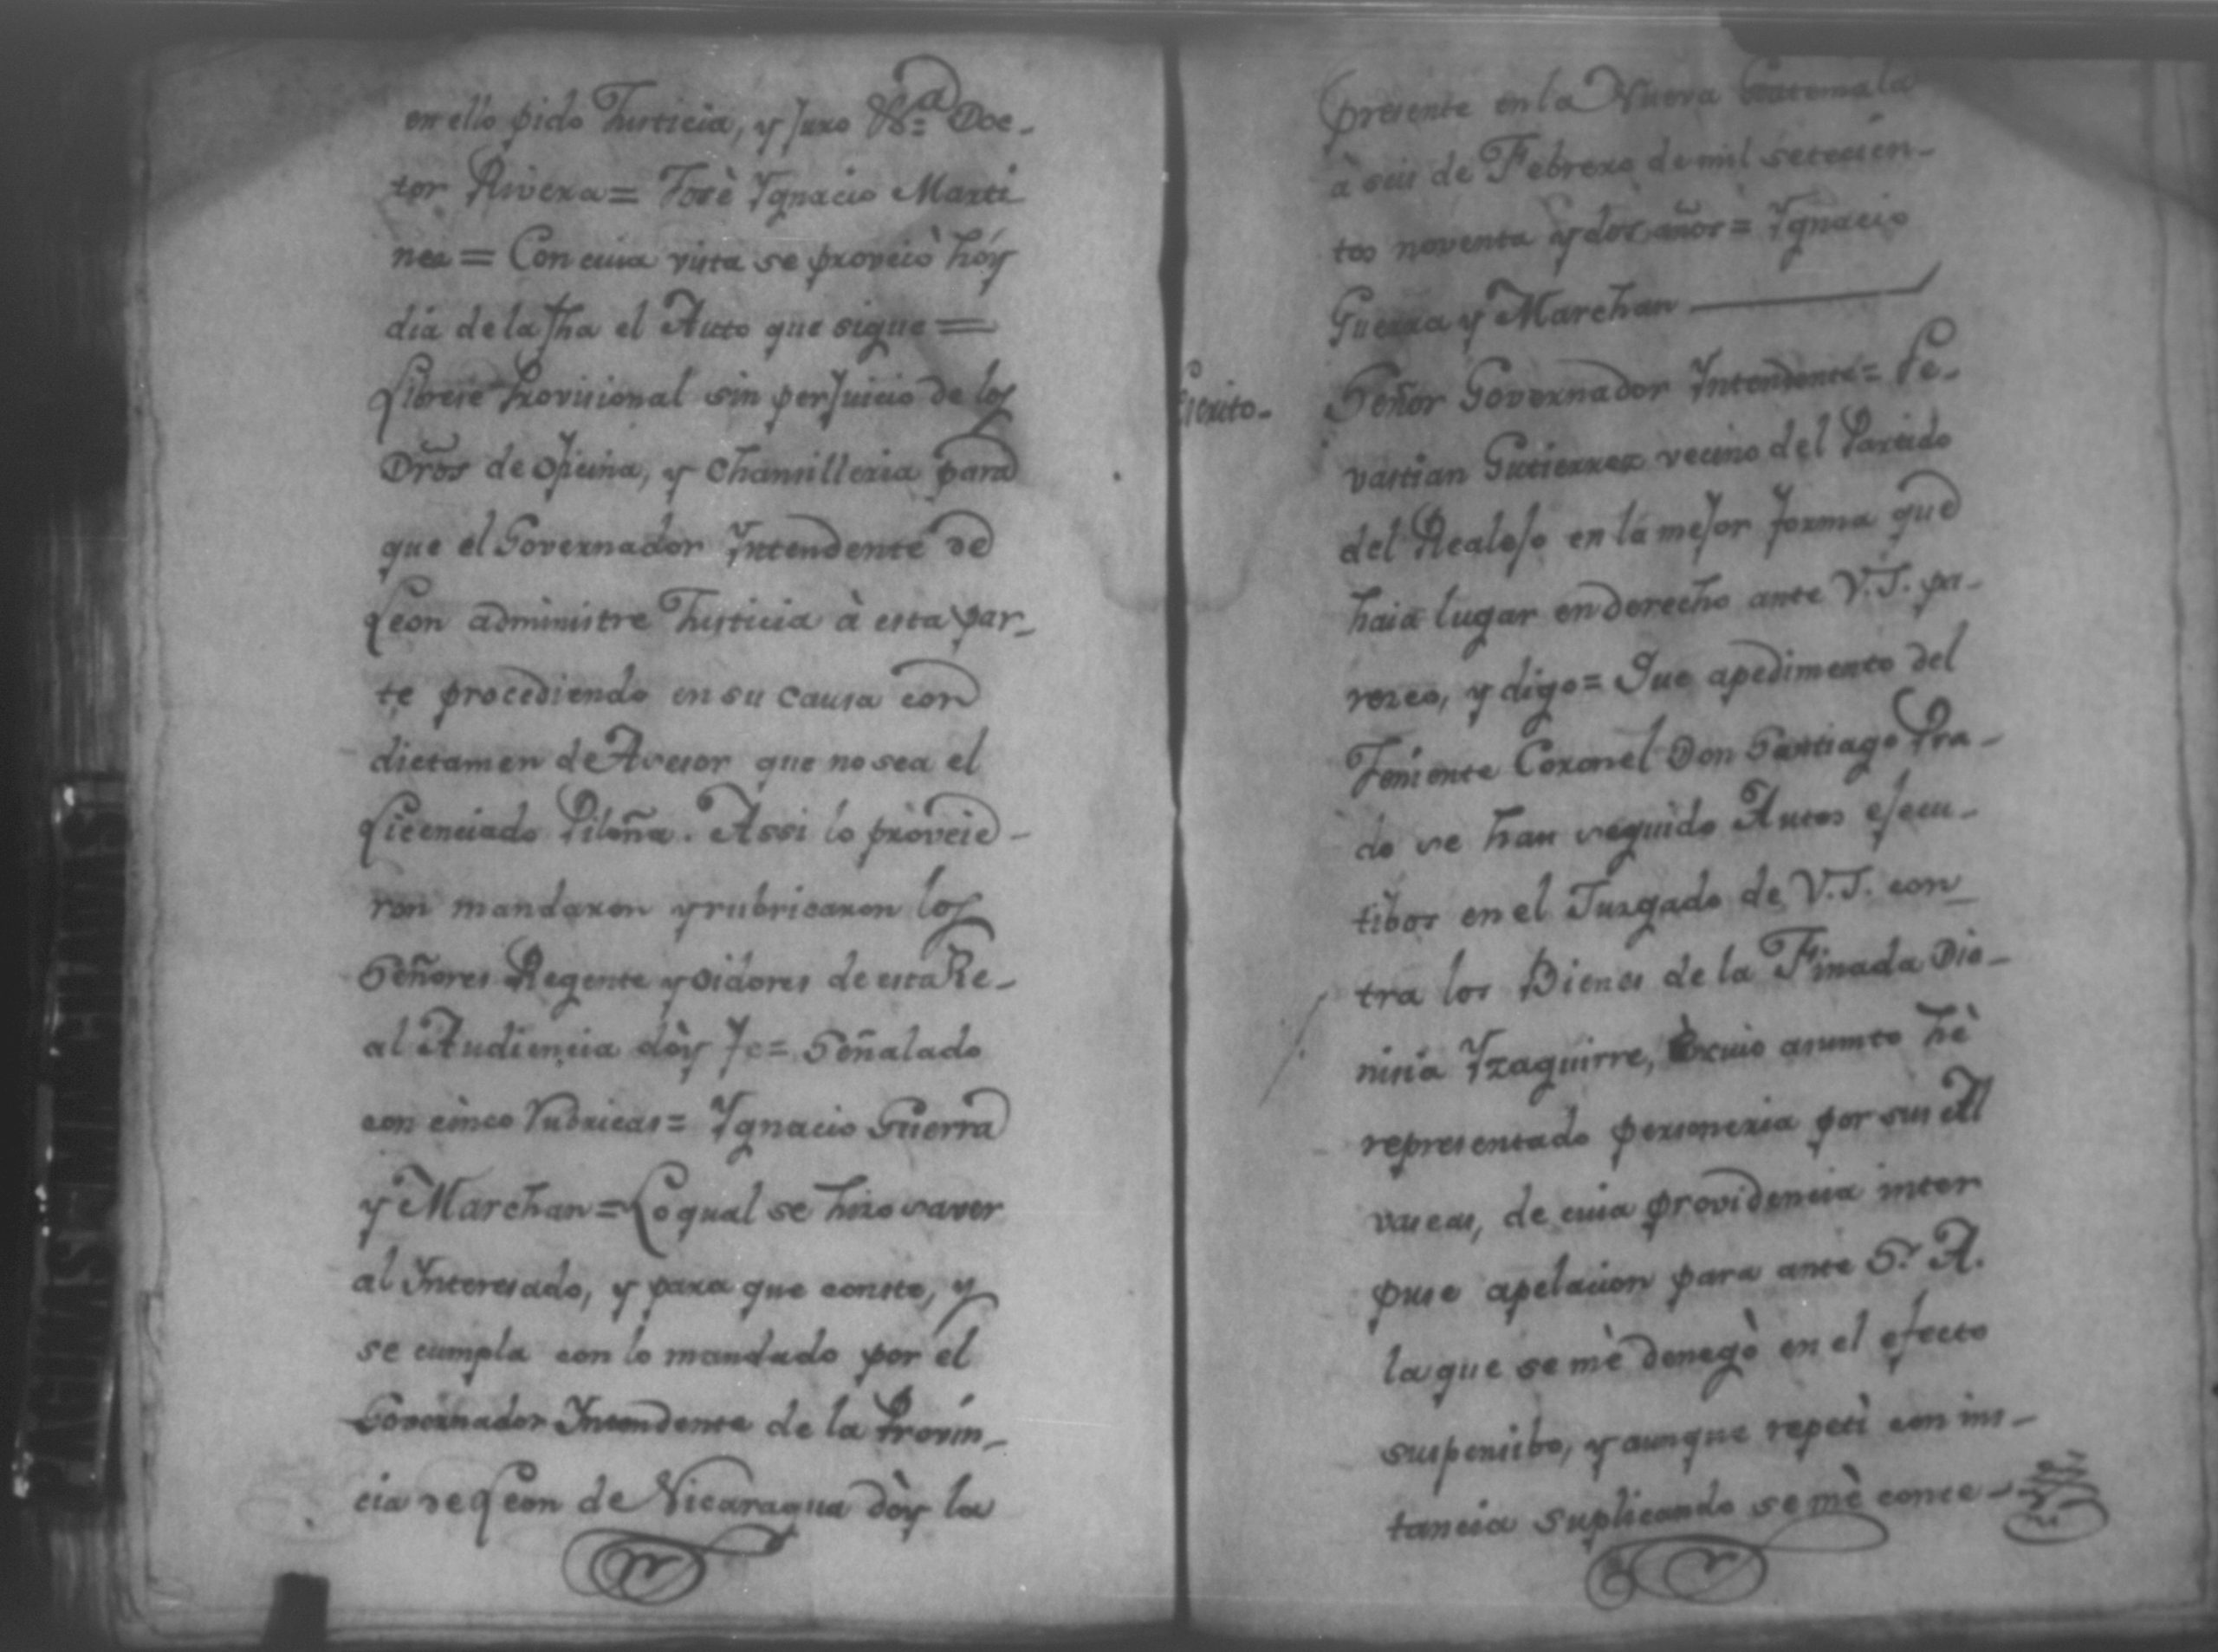 en ello pido Justicia, y Juro &ª Doc-
tor Rivera = José Ygnacio Marti
nez = Con cuia vista se proveiò hóy
dia de la fha el Auto que sigue =
Librese Provisional sin perJuicio de los
Dr̃os de oficina, y chansilleria para
que el Governador Yntendente de
Leon administre Justicia à esta par-
te procediendo en su causa con
dictamen de Acesor que no sea el
Licenciado Piloña. Assi lo proveie-
ron mandaron y rubricaron los
Señores Regente y oidores de esta Re-
al Audiencia dòy fe = Señalado
con cinco rubricas = Ygnacio Guerra
y Marchan = Lo qual se hizo saver
al Ynteresado, y para que conste, y
se cumpla con lo mandado por el
Governador Yntendente de la Provin-
cia de Leon de Nicaragua dòy la
presente en la Nueva Guatemala
à seis de Febrero de mil setecien-
tos noventa y dos años = Ygnacio
Guerra y Marchan
Escrito-
Señor Governador Yntendente = Se-
vastian Gutierrez vecino del Partido
del Realejo en la meJor forma que
haia lugar en derecho ante V.S. pa-
rezco, y digo = Que apedimento del
Teniente Coronel Don Santiago Pra-
do se han seguido Autos eJecu-
tibos en el Juzgado de V.S. con-
tra los Bienes de la Finada Dio-
nisia Yzaguirre, cuio asumto hè
representado personeria por sus
de cuia providencia inter
puse apelacion para ante S. A.
la que se mè denegò en el efecto
suspensibo, y aunque repetì con ins-
tancia suplicando se mè conce-